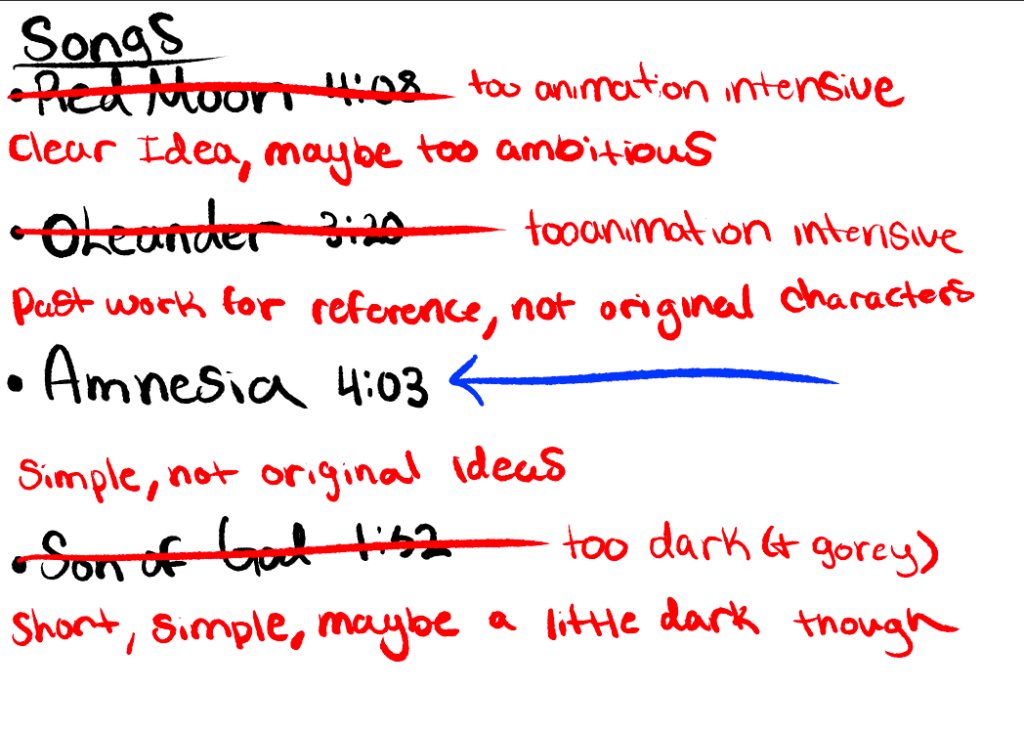 Songs
• Red Moon 4:08 too animation intensive
Clear Idea, maybe too ambitious
• OLeander 3:20 too animation intensive
Past work for reference, not original characters
• Amnesia 4:03
Simple, not original ideas
• Son of God 1:52 too dark (+ gorey)
Short, simple, maybe a little dark though